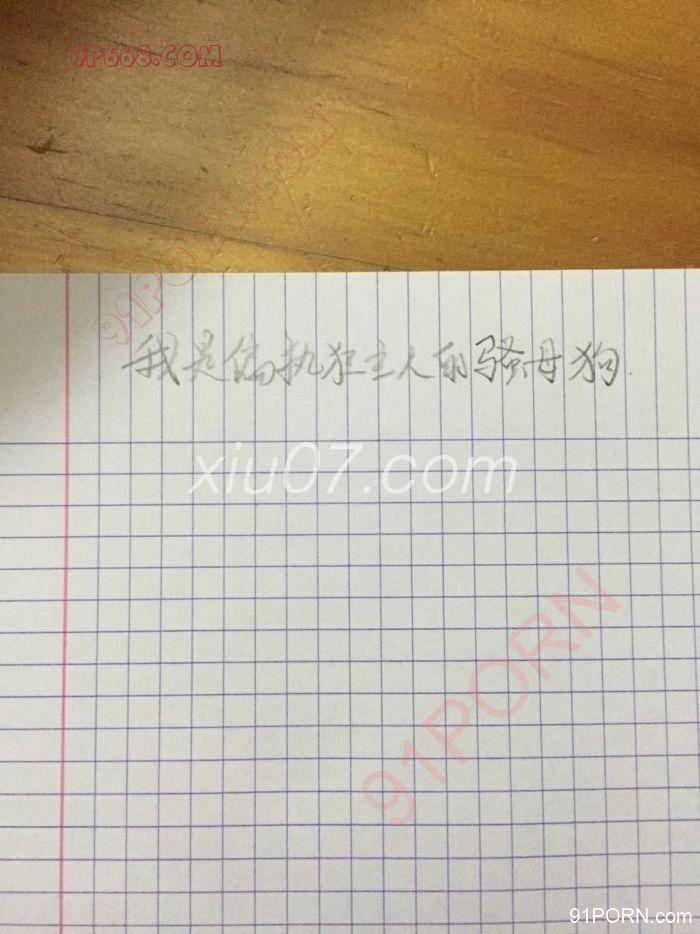 1P668.COM
91PORN.COM
我是偏执狂主人的骚母狗.
xiu07.com
91PORN
91PORN.com